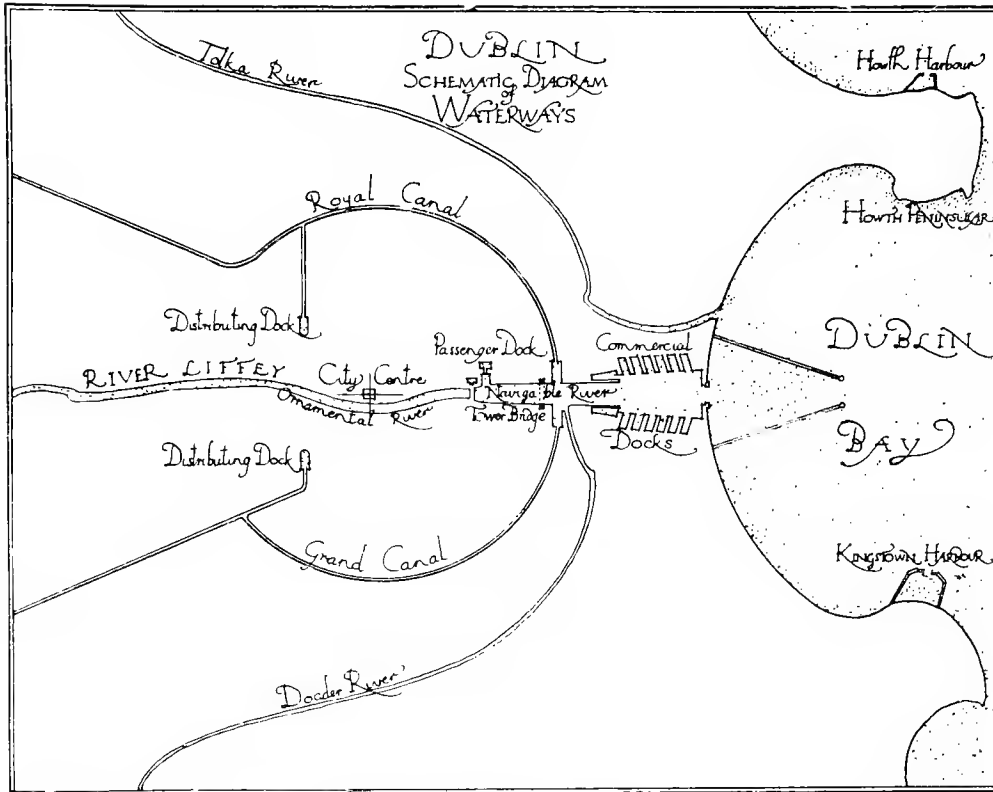 DUBLIN
SCHEMATIC DIAGRAM
of
WATERWAYS
Tolka River
Howth Harbour
Royal Canal
HOWTH PENINSULAR
Distributing Dock
Passenger Dock
Commercial
DUBLIN
RIVER LIFFEY
City Centre
Navigable River
Ornamental River
Tower Bridge
Docks
BAY
Distributing Dock
Grand Canal
KINGSTOWN HARBOUR
Dodder River